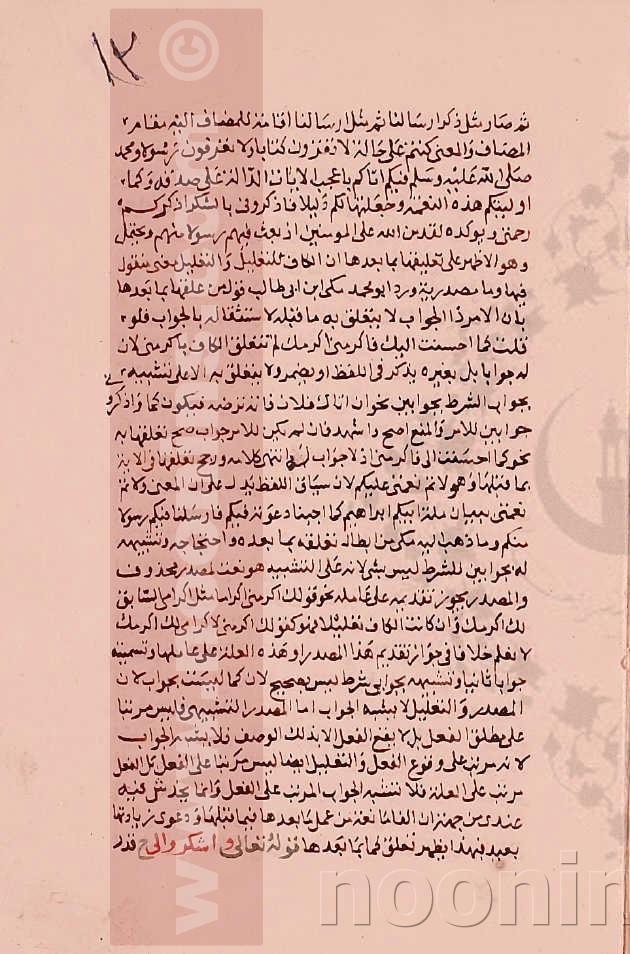 ١٢
ثم صار مثل ذكر ارسالنا ثم مثل ارسالنا اقامة للمضاف اليه مقام
المضاف والمعنى كنتم على حالة لا تقرءون كتابا ولا تعرفون رسولا ومحمد
صلى الله عليه وسلم فيكم اتاكم باعجب الايات الدالة على صدقه وكما
اوليتكم هذه النعمة وجعلتها لكم دليلا فاذكروني بالشكر اذكركم
رحمتي ويوكده لقد من الله على المومنين اذ بعث فيهم رسولا منهم ويحتمل
وهو الاظهر على تعليقها بما بعدها ان الكاف للتعليل والتعليل يقول
فيها وما مصدرية ورد ابو محمد مكى ابن ابى طالب قول من علقها بما بعدها
بان الامر ذا الجواب لا يتعلق به ما قبله لاشتغاله بالجواب فلو
قلت كما احسنت اليك فاكرمنى اكرمك لم تتعلق الكاف باكرمنى لان
له جوابا بل بغيره يذكر فى اللفظ او يضمر ولا يتعلق به الا على تشبيهه
بجواب الشرط بجوابين نحو ان اتاك فلان فاته ترضه فيكون كما واذكروني
جوابين للامر والمنع اصح واشهد فان لم يكن للامر جواب صح تعلقها به
نحو كما احسنت الى فاكرمنى اذ لا جواب له انتهى كلامه ورجح تعلقها فى الاية
بما قبلها وهو لاتم نعمتى عليكم لان سياق اللفظ يدل على ان المعنى ولاتم
نعمتى ببيان ملة ابيكم ابراهيم كما اجبنا دعوته فيكم فارسلنا فيكم رسولا
منكم وما ذهب اليه مكى من ابطال تعلقه بما بعده واحتجاجه وتشبيهه
له بجوابين للشرط ليس بشى لانه على التشبيه هو نعت لمصدر محذوف
والمصدر يجوز تقديمه على عامله نحو قولك اكرمنى اكراما مثل اكرامى السابق
لك اكرمك وان كانت الكاف تعليلا فهو كقولك اكرمنى لاكرامى لك اكرمك
لا نعلم خلافا فى جواز تقديم هذا المصدر او هذه العلة على عاملها وتسميته
جوابا ثانيا وتشبيهه بجوابى شرط ليس بصحيح لان كما ليست بجواب لان
المصدر والتعليل لا يشبه الجواب اما المصدر التشبيهى فليس مرتبا
على مطلق الفعل بل لا يقع الفعل الا بذلك الوصف فلا يشبه الجواب
لانه مرتب على وقوع الفعل والتعليل ايضا ليس مرتبا على الفعل بل الفعل
مرتب على العلة فلا تشبه الجواب المرتب على الفعل وانما يخدش فيه
عندى من جهة ان الفا مانعة من عمل ما بعدها فيما قبلها ودعوى زيادتها
بعيد فبهذا يظهر تعلق كما بما بعدها قوله تعالى واشكروا لى قدر
noonin
©